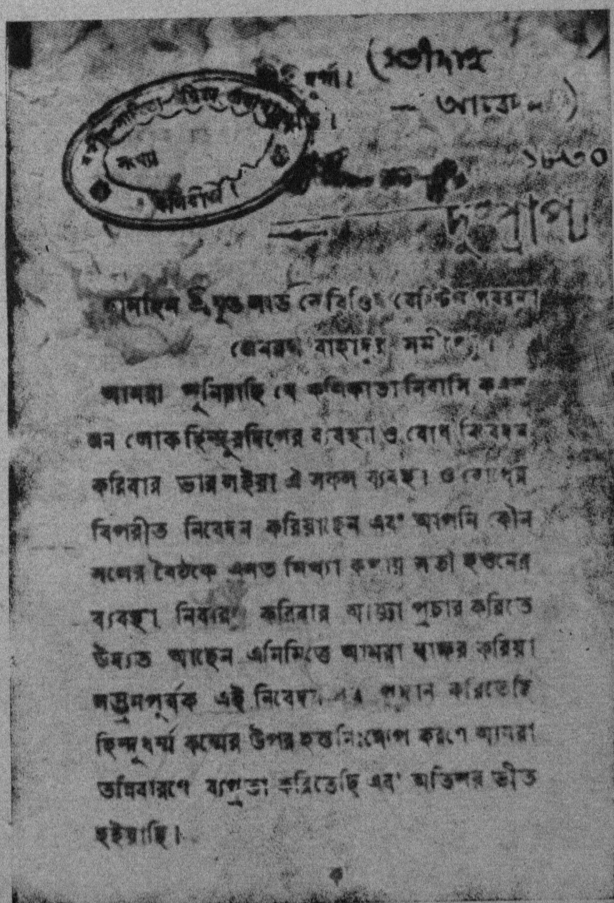 (সতীদাহ
১৮৩০
দুঃপ্রাপ্য
শ্রীযুত লার্ড
জেনরল বাহাদুর সমীপেষু।
আমরা শুনিয়াছি যে কলিকাতা নিবাসি কএক
জন লোক হিন্দুরদিগের ব্যবস্থা ও বোধ নিবেদন
করিবার ভার লইয়া ঐ সকল ব্যবস্থা ও বোধের
বিপরীত নিবেদন করিয়াছেন এবং আপনি কৌন
সলের বৈঠকে এমত মিথ্যা কথায় সতী হওনের
ব্যবস্থা নিবারণ করিবার আজ্ঞা প্রচার করিতে
উদ্যত আছেন এনিমিত্তে আমরা স্বাক্ষর করিয়া
সম্ভ্রমপূর্ব্বক এই নিবেদন পত্র প্রদান করিতেছি
হিন্দুধর্ম্ম কর্ম্মের উপর হস্তনিঃক্ষেপ করণে আমরা
তন্নিবারণে ব্যগ্রতা করিতেছি এবং অতিশয় ভীত
হইয়াছি।